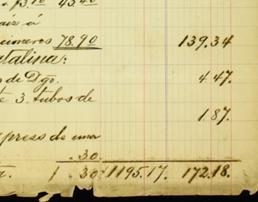 75.10 45.40
á
78.90 139.34
talina:
de Dgo. 4.47.
te 3. tubos de
1.87.
press de una
.30.
30. 1195.17. 172.18.